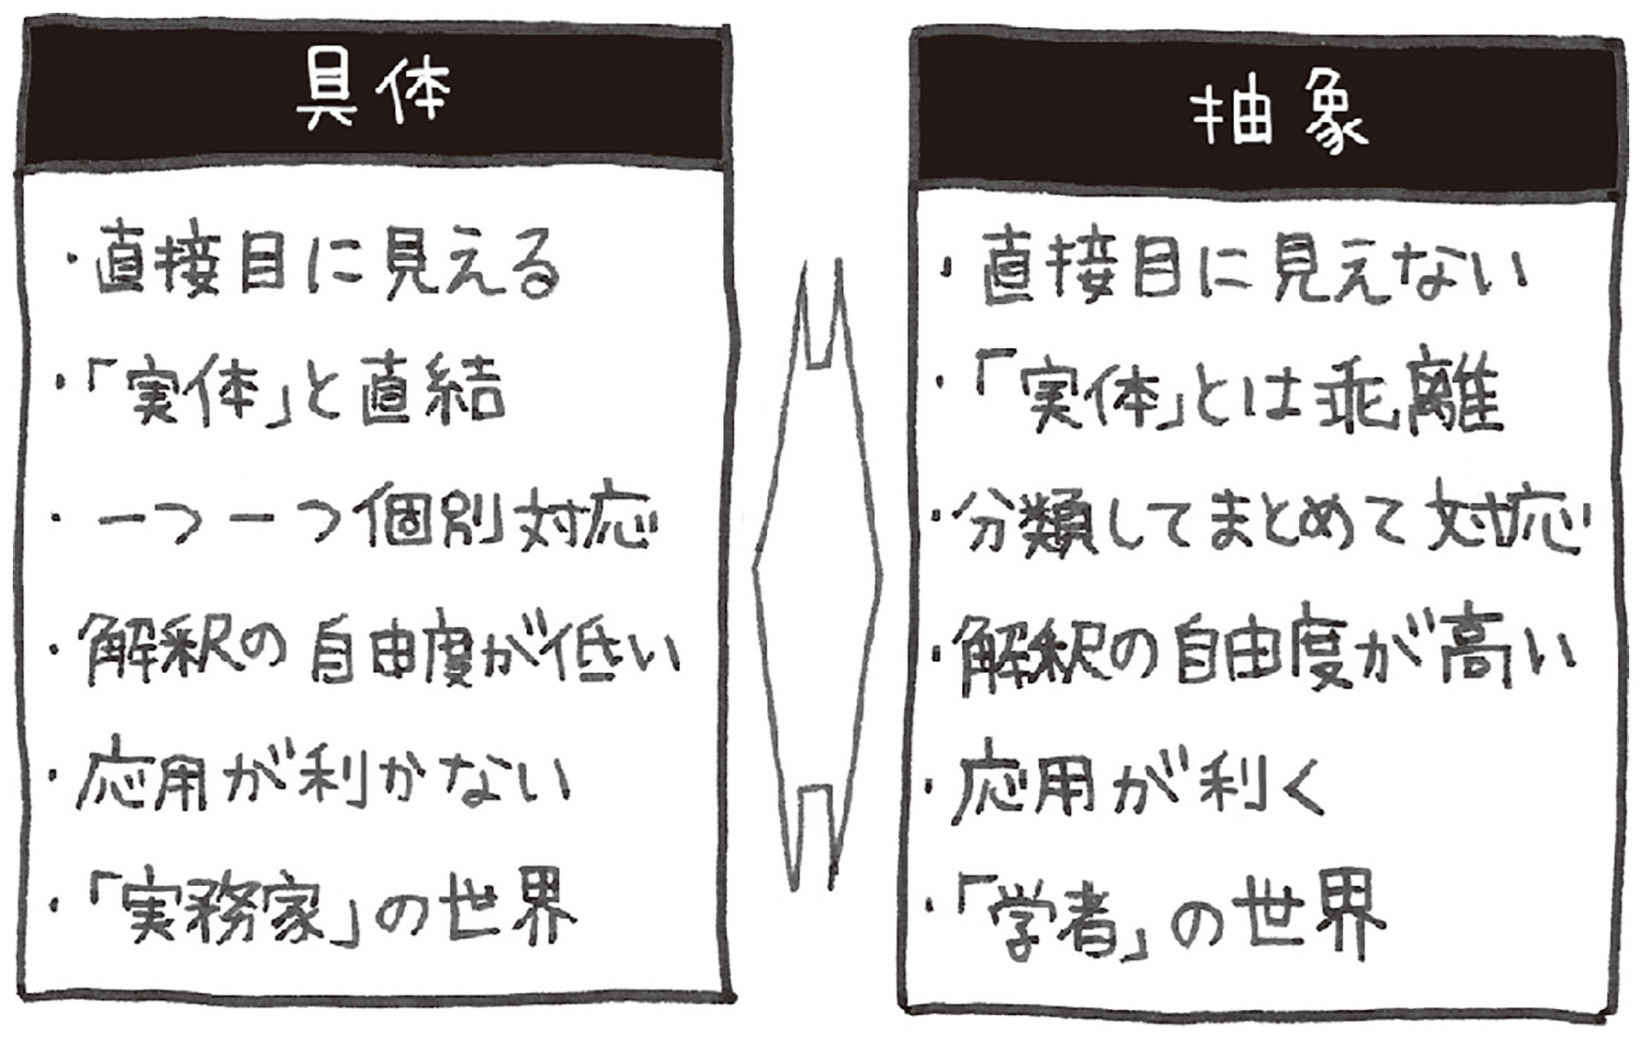 具体
・直接目に見える
・「実体」と直結
・一つ一つ個別対応
・解釈の自由度が低い
・応用が利かない
・「実務家」の世界
抽象
・直接目に見えない
・「実体」とは乖離
・分類してまとめて対応
・解釈の自由度が高い
・応用が利く
・「学者」の世界